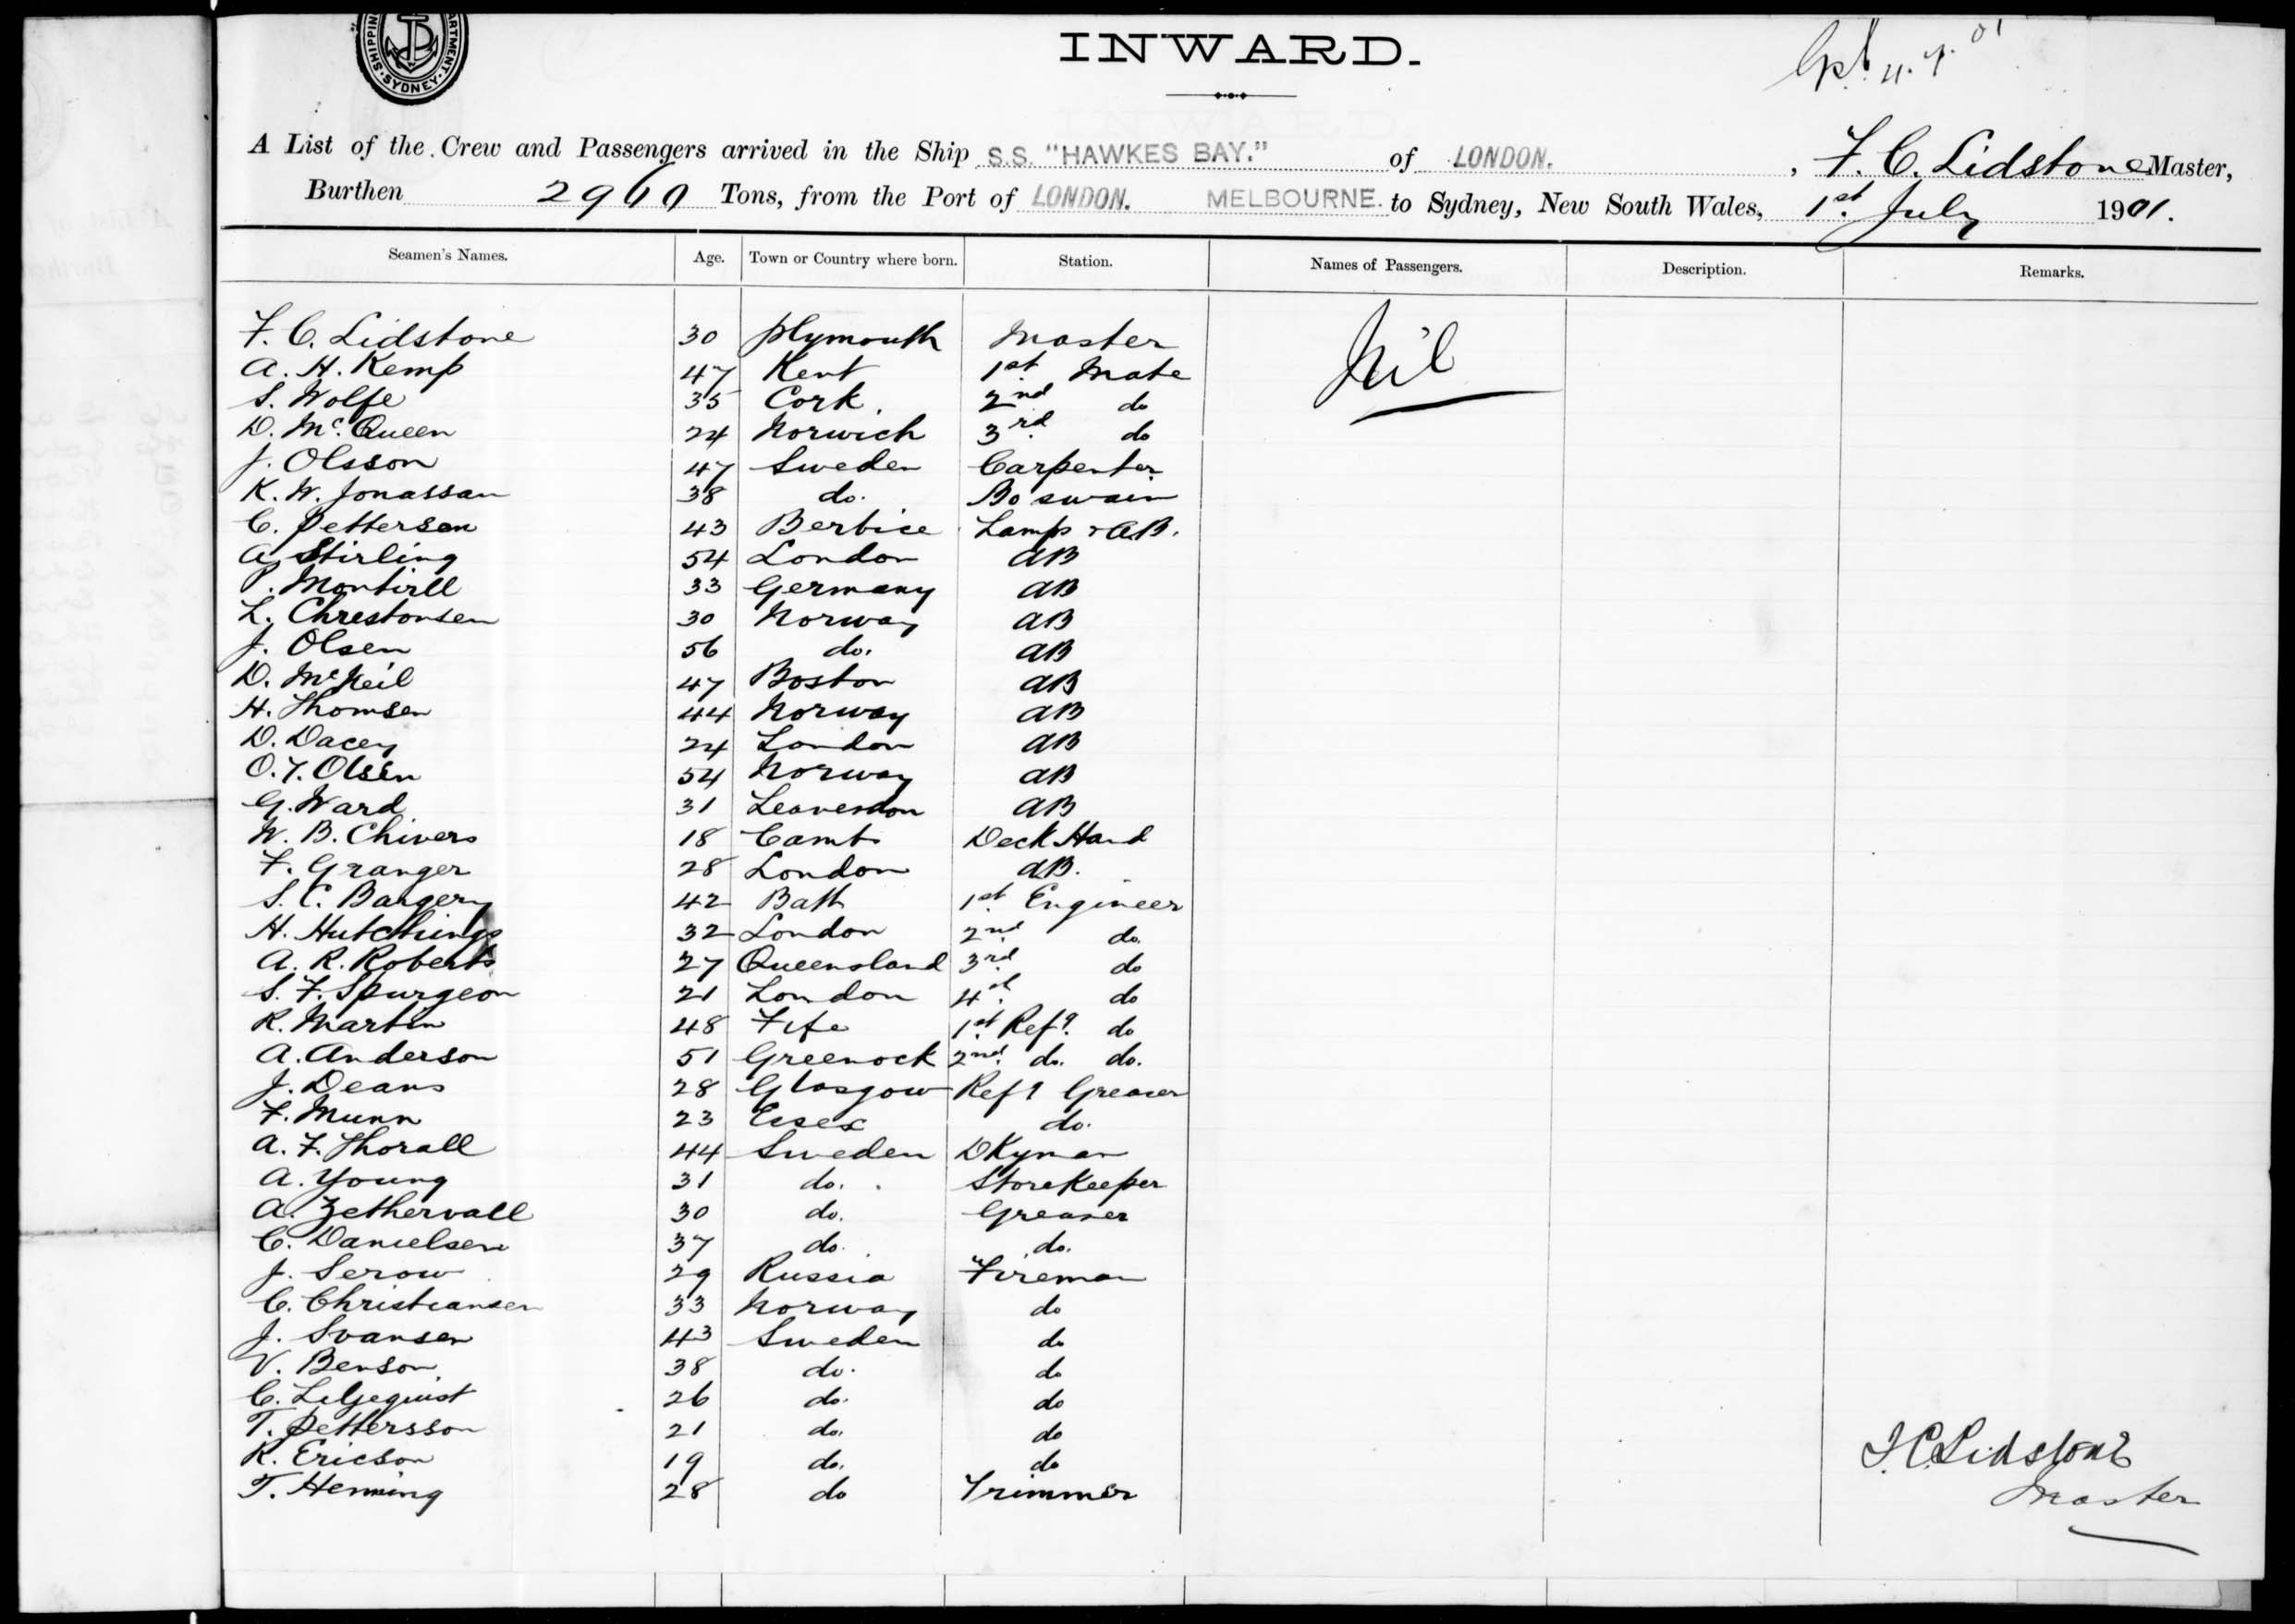 SHIPPING DEPARTMENT. SYDNEY
INWARD.
A List of the Crew and Passengers arrived in the Ship S.S. "HAWKES BAY." of LONDON. , F. C. Lidstone Master,
Burthen Tons, from the Port of LONDON. MELBOURNE. to Sydney, New South Wales, 1st July 1901.
Seamen's Names. Age. Town or Country where born. Station. Names of Passengers. Description. Remarks.
F. C. Lidstone 30 Plymouth Master Nil
A. H. Kemp 47 Kent 1st Mate
S. Wolfe 35 Cork. 2nd do
D. Mc. Queen 24 Norwich 3rd do
J. Olsson 47 Sweden Carpenter
K. W. Jonassan 38 do. Boswain
C. Pettersen 43 Berbice Lamp + AB.
A. Stirling 54 London AB
P. Montirll 33 Germany AB
L. Chrestonsen 30 Norway AB
J. Olsen 56 do. AB
D. McNeil 47 Boston AB
H. Thomsen 44 Norway AB
D. Dacey 24 London AB
O. T. Olsen 54 Norway AB
G. Ward 31 Leavesdon AB
W. B. Chivers 18 Cambs Deck Hand
F. Granger 28 London AB.
S. C. Bargery 42 Bath 1st Engineer
H. Hutchings 32 London 2nd do.
A. R. Roberts 27 Queensland 3rd do
S. F. Spurgeon 21 London 4th do
R. Martin 48 Fife 1st Refg. do
A. Anderson 51 Greenock 2nd do. do.
J. Deans 28 Glasgow Refg Greaser
F. Munn 23 Essex do.
A. F. Thorall 44 Sweden DKyman
A. Young 31 do. Storekeeper
A. Zethervall 30 do. Greaser
C. Danielsen 37 do. do.
J. Serow 29 Russia Fireman
C. Christiansen 33 Norway do
J. Svansen 43 Sweden do
V. Benson 38 do. do
C. Liljequist 26 do. do
T. Pettersson 21 do. do
K. Ericson 19 do. do
T. Henning 28 do Trimmer
F. C. Lidstone
Master